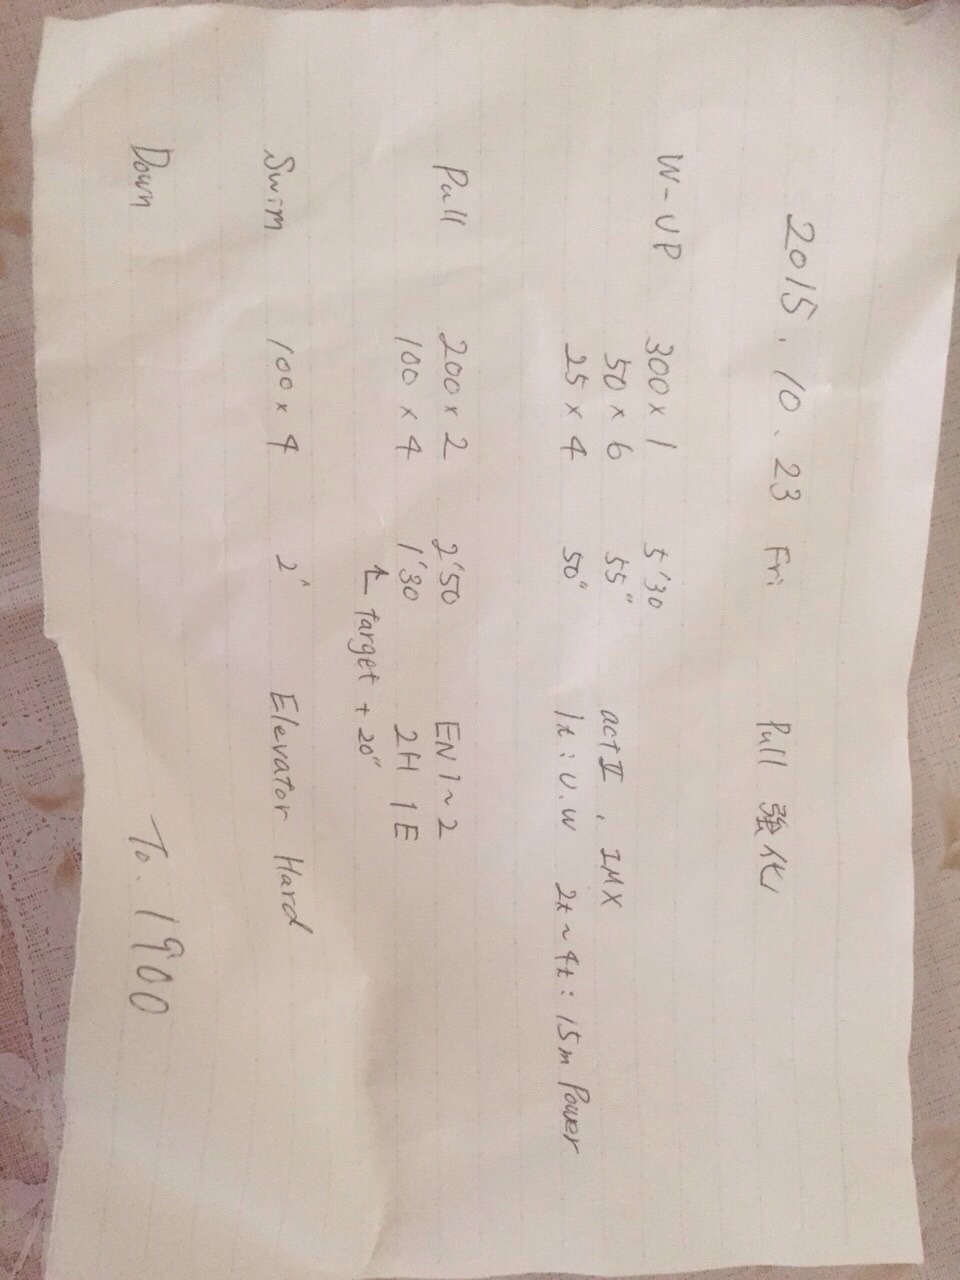 2015. 10. 23 Fri Pull 強化
W-UP 300 × 1 5'30
50 × 6 55" act II, IMX
25 × 4 50" 1t : U.W 2t ~ 4t : 15m Power
Pull 200 × 2 2'50 EN 1 ~ 2
100 × 4 1'30 2H 1E
↑ target + 20"
Swim 100 × 4 2' Elevator Hard
Down
To. 1900